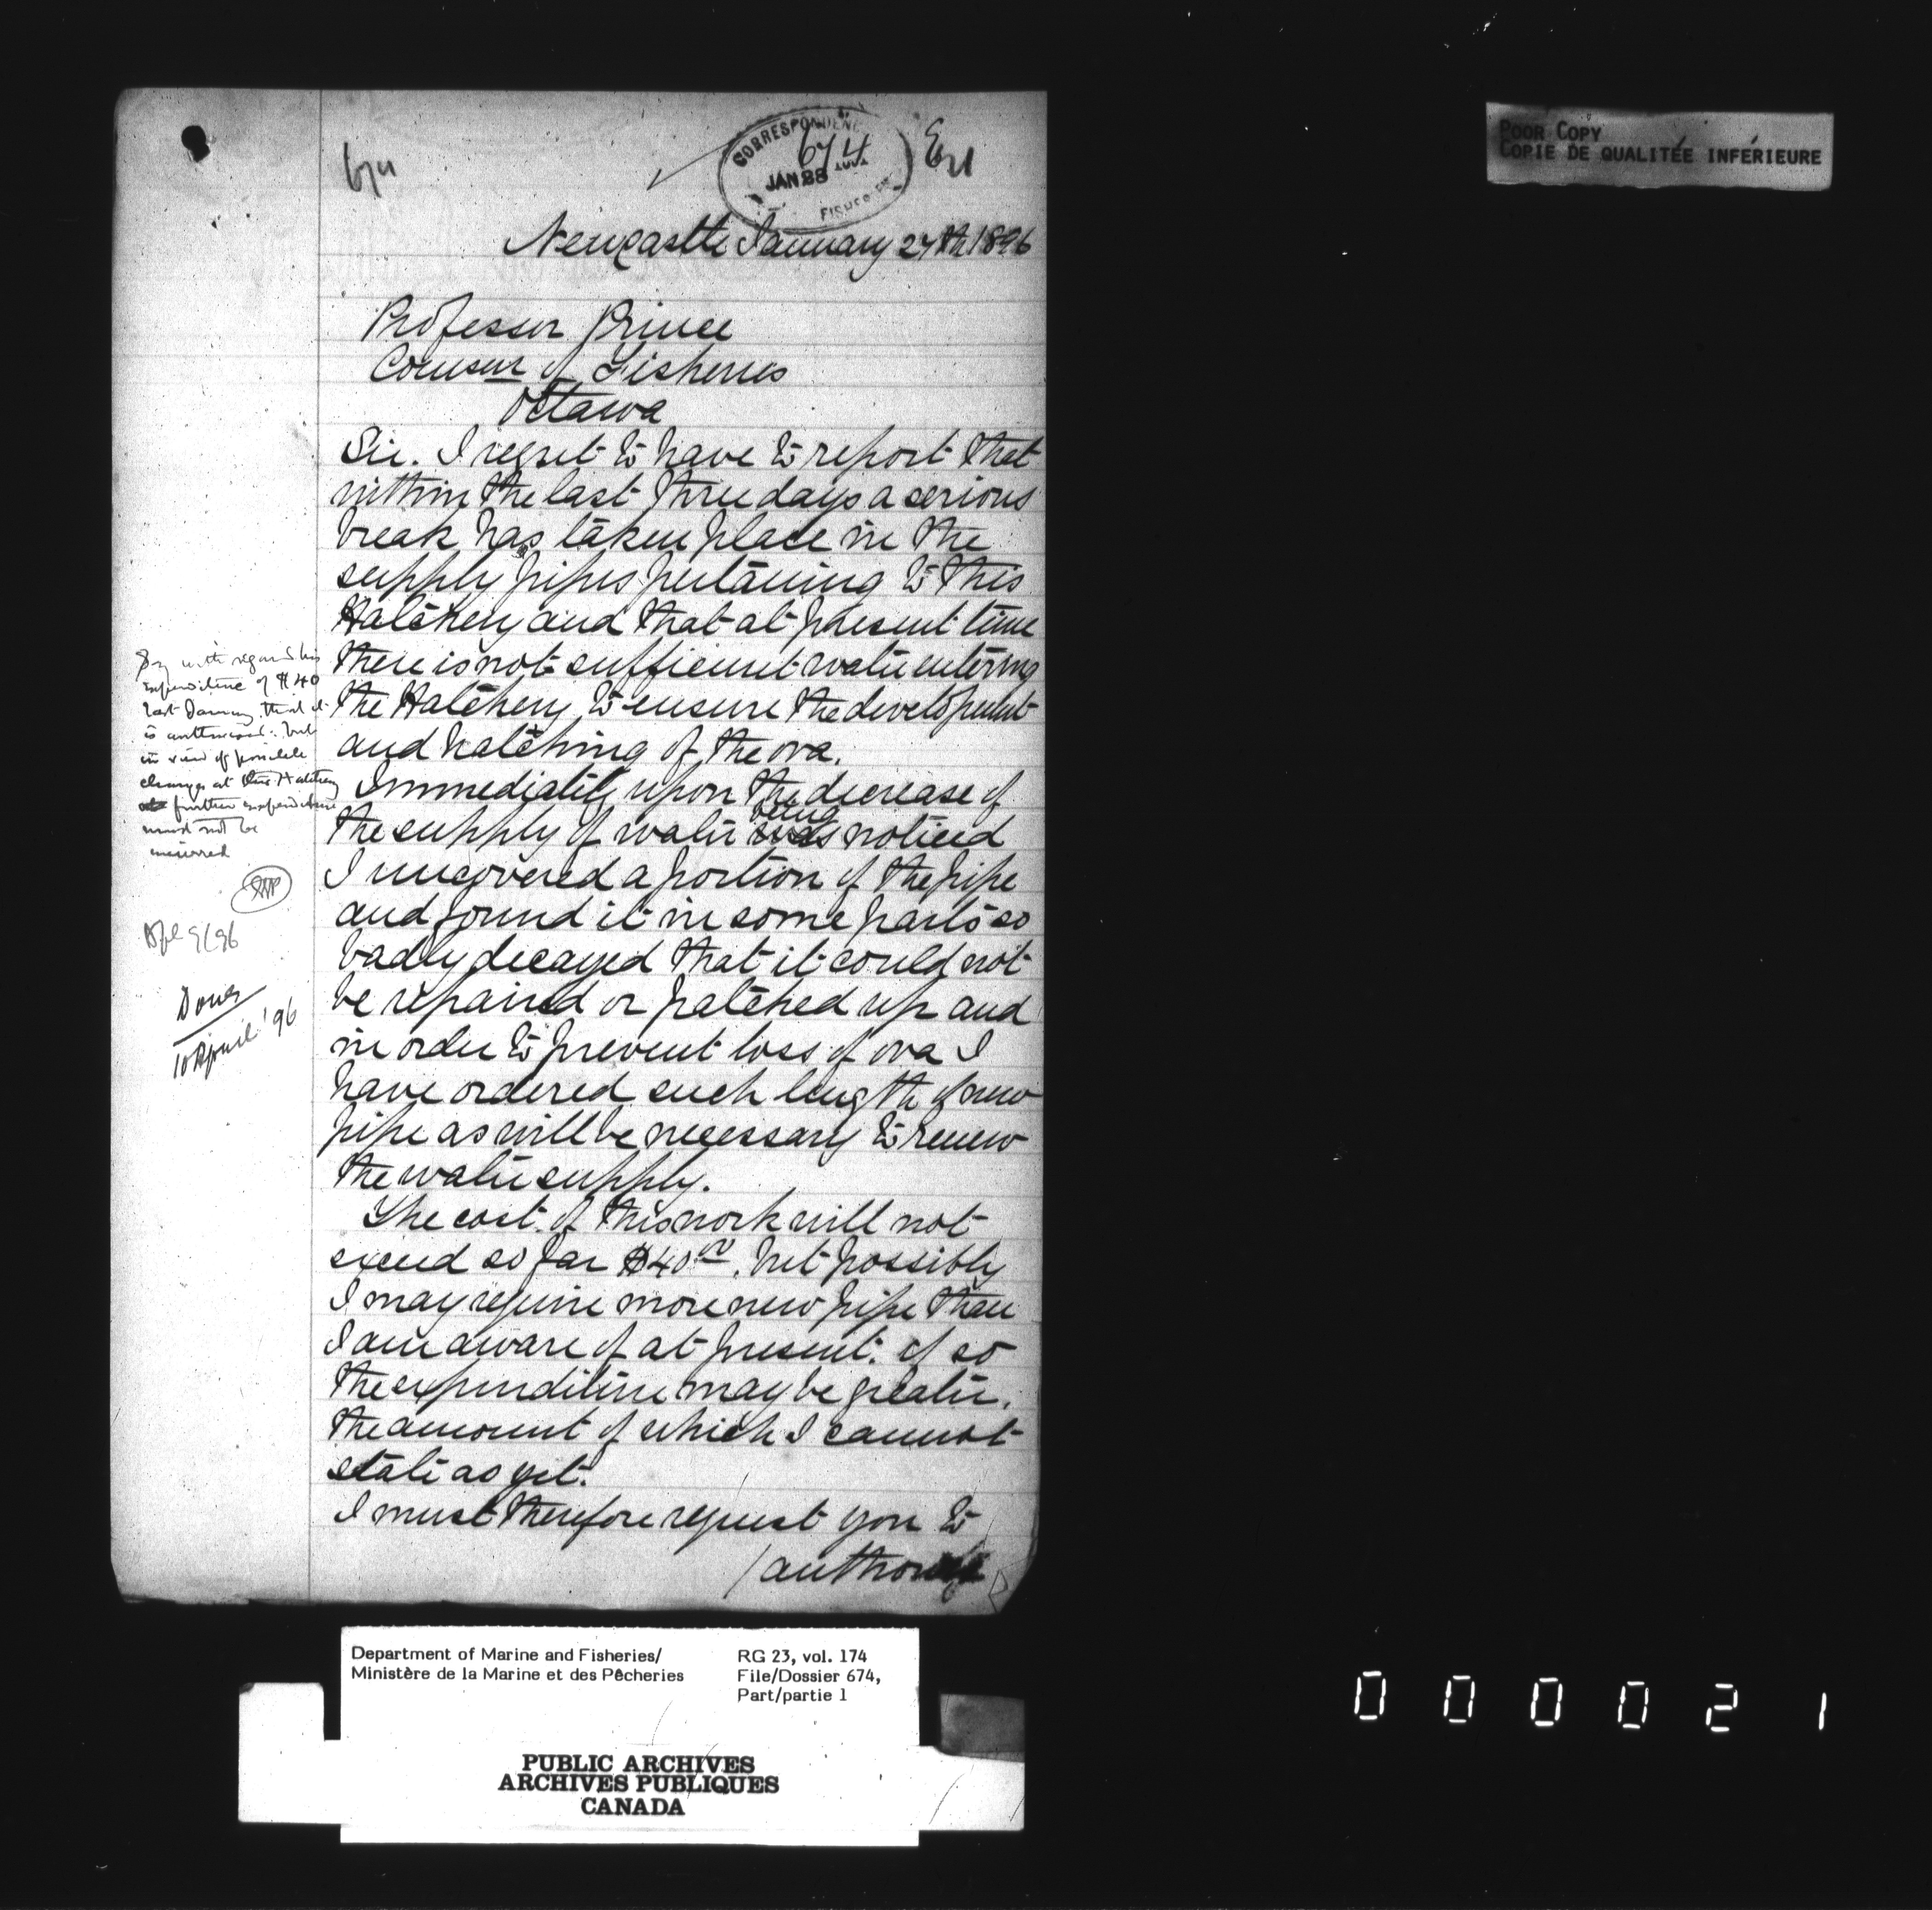 POOR COPY
COPIE DE QUALITÉE INFÉRIEURE
CORRESPONDENCE
674
JAN 28
674
Newcastle January 27th 1896
Professor Prince
Comsnr of Fisheries
Ottawa
Sir. I regret to have to report that
within the last three days a serious
break has taken place in the
supply pipes pertaining to this
Hatchery and that at present time
there is not sufficient water entering
the Hatchery to ensure the development
and hatching of the ova.
Immediately upon the decrease of
the supply of water being noticed
I uncovered a portion of the pipe
and found it in some parts so
badly decayed that it could not
be repaired or patched up and
in order to prevent loss of ova I
have ordered such length of new
pipe as will be necessary to renew
the water supply.
The cost of this work will not
exceed so far $40.00, but possibly
I may require more new pipe than
I am aware of at present. if so
the expenditure may be greater,
the amount of which I cannot
state as yet.
I must therefore request you to
/authorize
Say with regard to his
expenditure of $40
last January, that it
is authorised. but
in view of possible
changes at this Hatchery
further expenditure
must not be
incurred
Apl 9/96
Done
10 April '96
Department of Marine and Fisheries/
Ministère de la Marine et des Pêcheries
RG 23, vol. 174
File/Dossier 674,
Part/partie 1
PUBLIC ARCHIVES
ARCHIVES PUBLIQUES
CANADA
000021